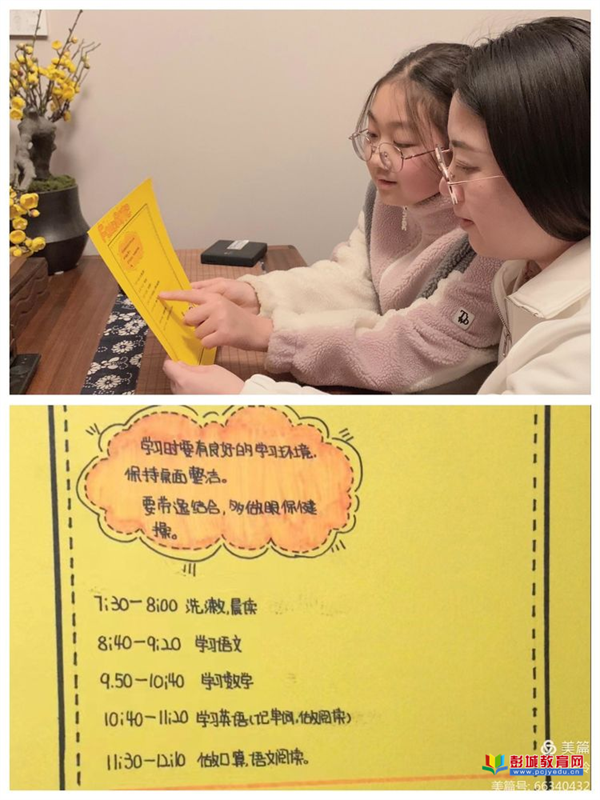 学习时要有良好的学习环境,
保持桌面整洁。
要劳逸结合,多做眼保健
操。
7:30-8:00 洗漱,晨读
8:40-9:20 学习语文
9.50-10:40 学习数学
10:40-11:20 学习英语(记单词,做阅读)
11:30-12:10 做口算,语文阅读。
美篇
彭城教育网
www.pcjyedu.cn
美篇号: 66340432